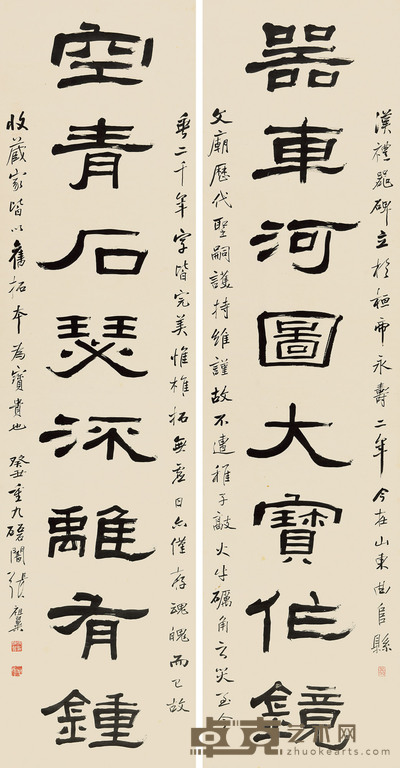 漢禮器碑立於桓帝永壽二年今在山東曲阜縣
器車河圖大寶作鏡
文廟歷代聖嗣護持維謹故不遭稚子敲火牛礪角之災至今
垂二千年字皆完美惟椎拓無虛日亦僅存魂魄而已故
空青石瑟深離有鍾
收藏家皆以舊拓本為寶貴也 癸丑重九磊闇張祖翼
卓克艺术网
zhuokearts.com